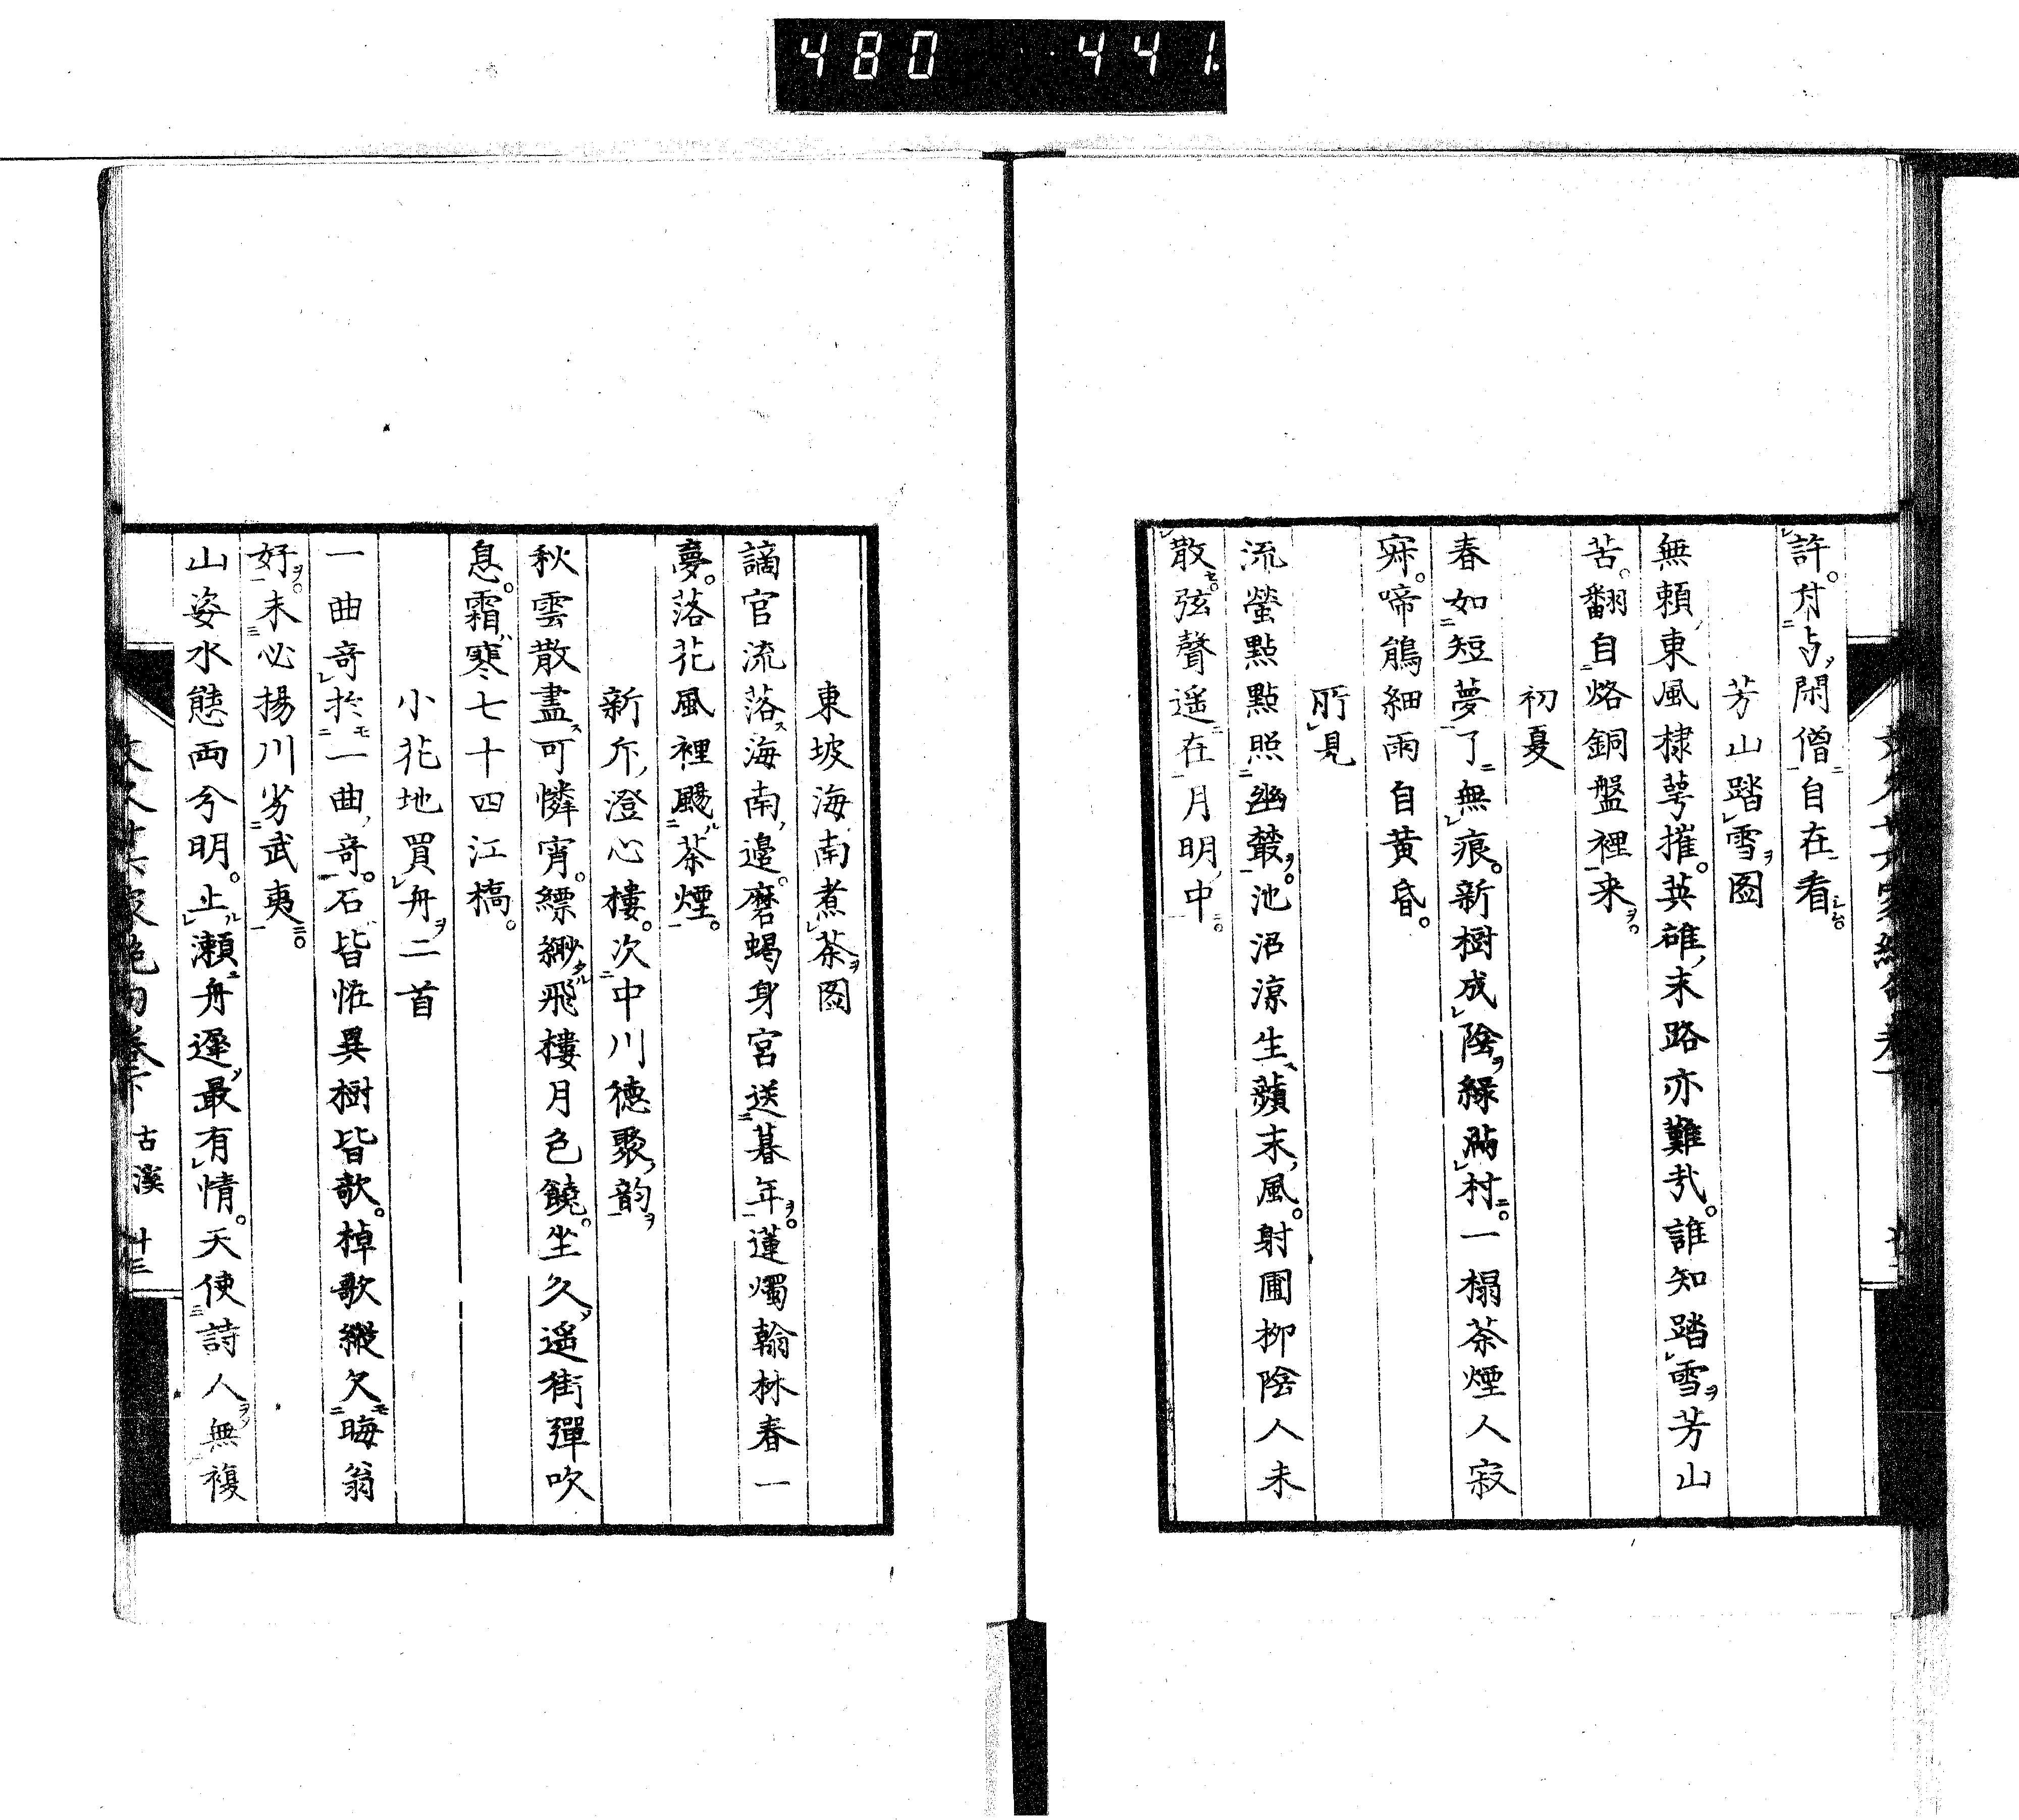 480 441
許付与閑僧自在看
芳山踏雪図
無頼東風棣萼摧英雄末路亦難哉誰知踏雪芳山
苦翻自烙銅盤裡来
初夏
春如短夢了無痕新樹成陰緑満村一榻茶煙人寂
寐啼鵑細雨自黄昏
所見
流螢點點照幽叢池沼涼生蘋末風射圃柳陰人未
散弦聲遥在月明中
東坡海南煮茶図
謫官流落海南邊磨蝎身宮送暮年蓮燭翰林春一
夢落花風裡颺茶煙
新斥澄心樓次中川徳聚韵
秋雲散盡可憐宵縹緲飛樓月色饒坐久遥街彈吹
息霜寒七十四江橋
小花地買舟二首
一曲奇於一曲奇石皆恠異樹皆欹棹歌縦欠晦翁
好未必揚川劣武夷
山姿水態両兮明上瀬舟遲最有情天使詩人無複
古溪 廿三